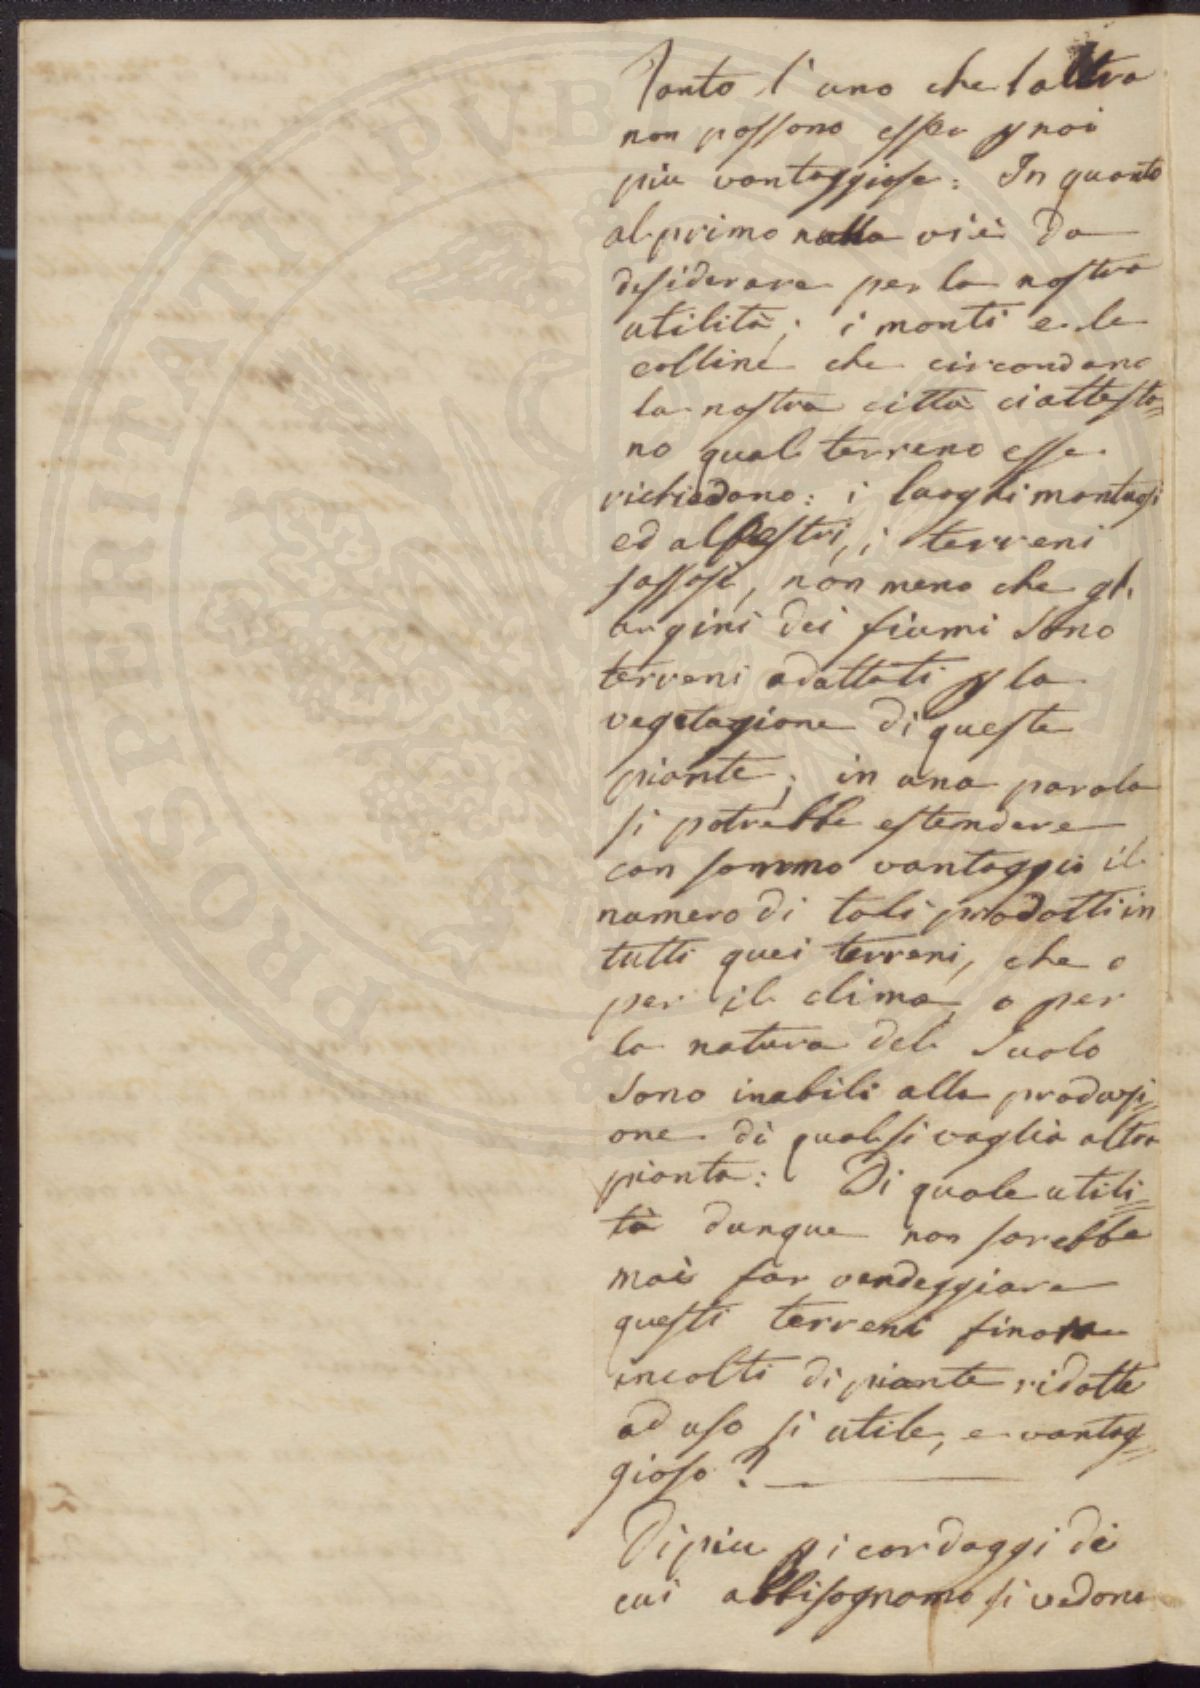 Tanto l'uno che laltro
non possono esser p noi
piu vantaggiose: In quanto
al primo nulla vi è da
desiderare per la nostra
utilità; i monti e le
colline che circondano
la nostra città ci attesta=
no qual terreno esse
richiedono: i luoghi montuosi
ed alpestri, i terreni
sassosi, non meno che gl'
argini dei fiumi sono
terreni adattati p la
vegetazione di queste
piante; in una parola
si potrebbe estendere
con sommo vantaggio il
numero di tali prodotti in
tutti quei terreni, che o
per il clima, o per
la natura del suolo
sono inabili alla produzi=
one di qualsivoglia altra
pianta: Di quale utili=
tà dunque non sarebbe
mai far verdeggiare
questi terreni finora
incolti di piante ridotte
ad uso si utile, e vantag=
gioso?
Di piu i cordaggi di
cui abbisognamo si vedono
PROSPERITATI PUBLICAE